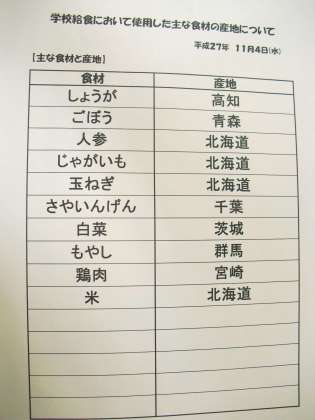 学校給食において使用した主な食材の産地について
平成27年 11月4日(水)
【主な食材と産地】
食材 産地
しょうが 高知
ごぼう 青森
人参 北海道
じゃがいも 北海道
玉ねぎ 北海道
さやいんげん 千葉
白菜 茨城
もやし 群馬
鶏肉 宮崎
米 北海道